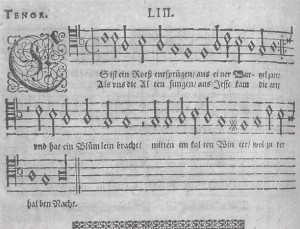 TENOR. LIII.
ES ist ein Roeß entsprungen/ aus einer Wurtzel zart/
Als vns die Alten sungen/ aus Jesse kam die art/
vnd hat ein Blümlein bracht/ mitten im kalten Winter/ wol zu der
halben Nacht.